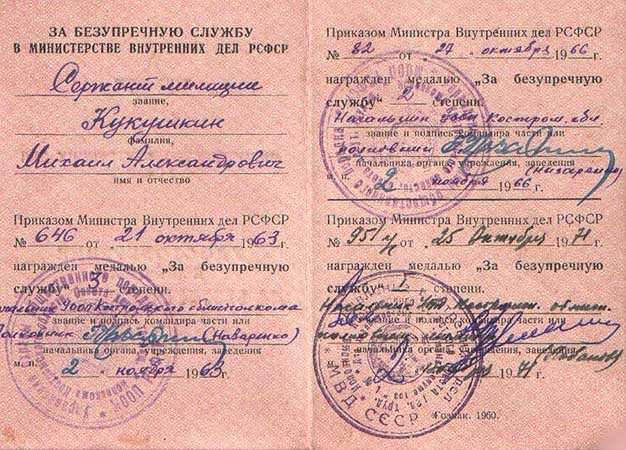 ЗА БЕЗУПРЕЧНУЮ СЛУЖБУ
В МИНИСТЕРСТВЕ ВНУТРЕННИХ ДЕЛ РСФСР
Сержант милиции
звание,
Кукушкин
фамилия,
Михаил Александрович
имя и отчество
Приказом Министра Внутренних дел РСФСР
№ 646 от 21 октября 1963 г.
награжден медалью „За безупречную
службу" 3 степени.
Начальник УООП Костромского облисполкома
звание и подпись командира части или
Полковник
начальника органа, учреждения, заведения
м. п. 2 ноября 1963
Приказом Министра Внутренних дел РСФСР
№ 82 от 27 октября 1966 г.
награжден медалью „За безупречную
службу" 2 степени.
Начальник Костром. обл.
звание и подпись командира части или
полковник
начальника органа, учреждения, заведения
2 ноября 1966 г.
Приказом Министра Внутренних дел РСФСР
№ от 25 октября 1971 г.
награжден медалью „За безупречную
службу" 1 степени.
звание и подпись командира части или
начальника органа, учреждения, заведения
1971 г.
МВД СССР
Гознак. 1960.